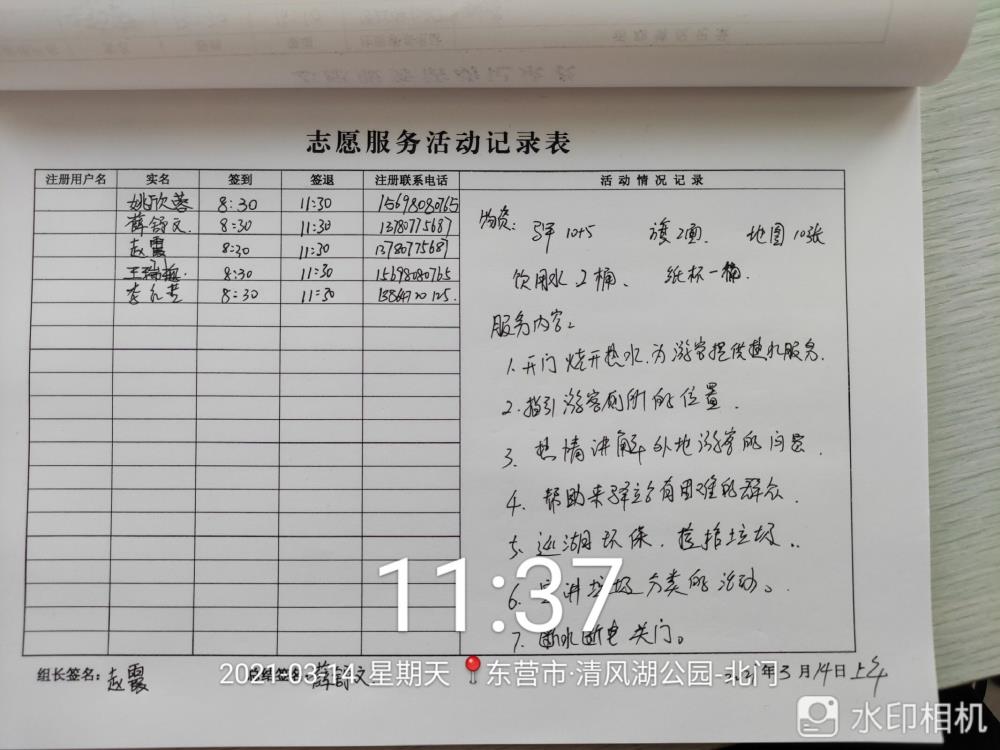 志愿服务活动记录表
注册用户名 实名 签到 签退 注册联系电话 活动情况记录
姚欣蓉 8:30 11:30 15698080765
薛舒文 8:30 11:30 13780775687
赵霞 8:30 11:30 13780775687
王瑞 8:30 11:30 15698080765
李 8:30 11:30
物资: 10+5 旗2面 地图10张
饮用水2桶、 纸杯一桶.
服务内容:
1.开门烧开热水,为游客提供热水服务.
2.指引游客厕所的位置.
3.热情讲解外地游客的问题.
4.帮助来驿站有困难的群众.
5.巡湖环保,捡拾垃圾.
6.宣讲垃圾分类的活动。
7.断水断电关门。
11:37
组长签名:赵霞 签名 薛舒文 年3月14日上午
2021-03-14 星期天 东营市·清风湖公园-北门
水印相机